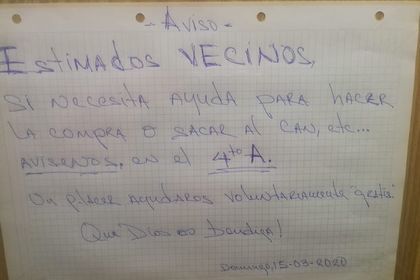 - Aviso -
Estimados VECINOS,
Si necesita ayuda para hacer
la compra o sacar al can, etc...
avisenos, en el 4to A.
Un placer ayudaros voluntariamente "gratis".
Que Dios os bendiga!
Domingo, 15-03-2020